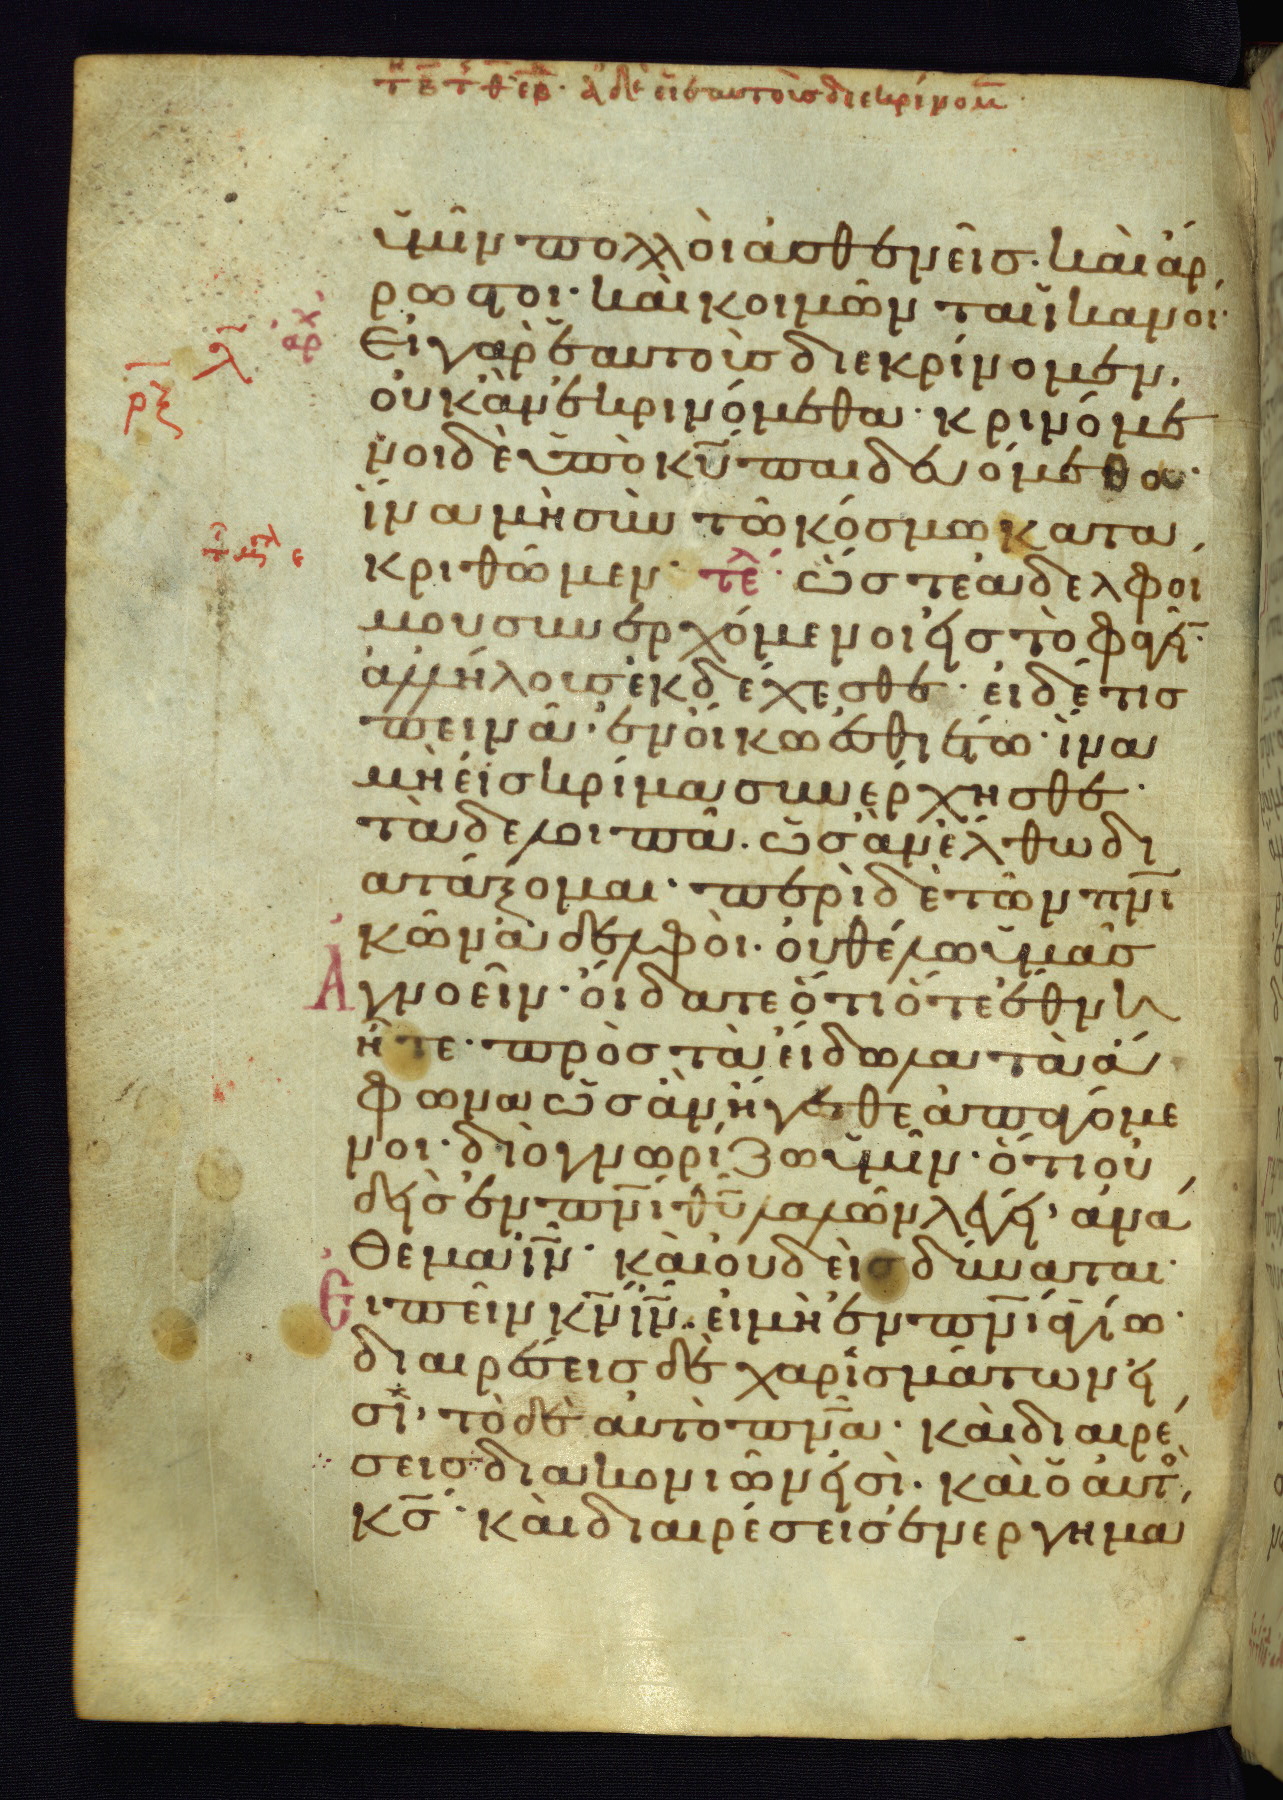 ἀδε εἰ ἑαυτοὺσ διεκρίνομ
ὑμῖν πολλοὶ ἀσθενεῖσ· καὶ ἄρ
ρωστοι· καὶ κοιμῶνται ἱκανοί·
ἀρχ
Εἰ γὰρ ἑαυτοὺσ διεκρίνομεν,
λ
ρξ
οὐκ ἂν ἐκρινόμεθα· κρινόμε
νοι δὲ ὑπὸ κ̅υ̅ παιδευόμεθα·
ἵνα μὴ σὺν τῶ κόσμω κατα
κριθῶμεν· τελ· ὥστε ἀδελφοί
μου συνερχόμενοι εἰσ τὸ φαγεῖ̅·
ἀλλήλουσ ἐκδέχεσθε· εἰ δέ τισ
πεινᾶ· ἐν οἴκω ἐσθιέτω· ἵνα
μὴ εἰσ κρίμα συνέρχησθε·
τὰ δὲ λοιπὰ· ὡσ ἂν ἔλθω δι
ατάξομαι· περὶ δὲ τῶν π̅ν̅ι̅
κῶν ἀδελφοὶ· οὐ θέλω ὑμᾶσ
Ἀγνοεῖν· οἴδατε ὅτι ὅτε ἔθνη
ἦτε· πρὸσ τὰ εἴδωλα τὰ ἄ
φωνα ὡσ ἂν ἤγεσθε ἀπαγόμε
νοι· διὸ γνωρίζω ὑμῖν· ὅτι οὐ
δεὶσ ἐν π̅ν̅ι̅ θ̅υ̅ λαλῶν λέγει· ἀνά
θεμα ἰ̅ν̅· καὶ οὐδεὶσ δύναται·
Εἰπεῖν κ̅ν̅ ἰ̅ν̅· εἰ μὴ ἐν π̅ν̅ι̅ ἁγίω·
διαιρέσεισ δὲ χαρισμάτων εἰ
σὶ· τὸ δὲ αὐτὸ π̅ν̅α̅· καὶ διαιρέ
σεισ διακονιῶν εἰσὶ· καὶ ὁ αὐτὸ
κ̅σ̅· καὶ διαιρέσεισ ἐνεργημα